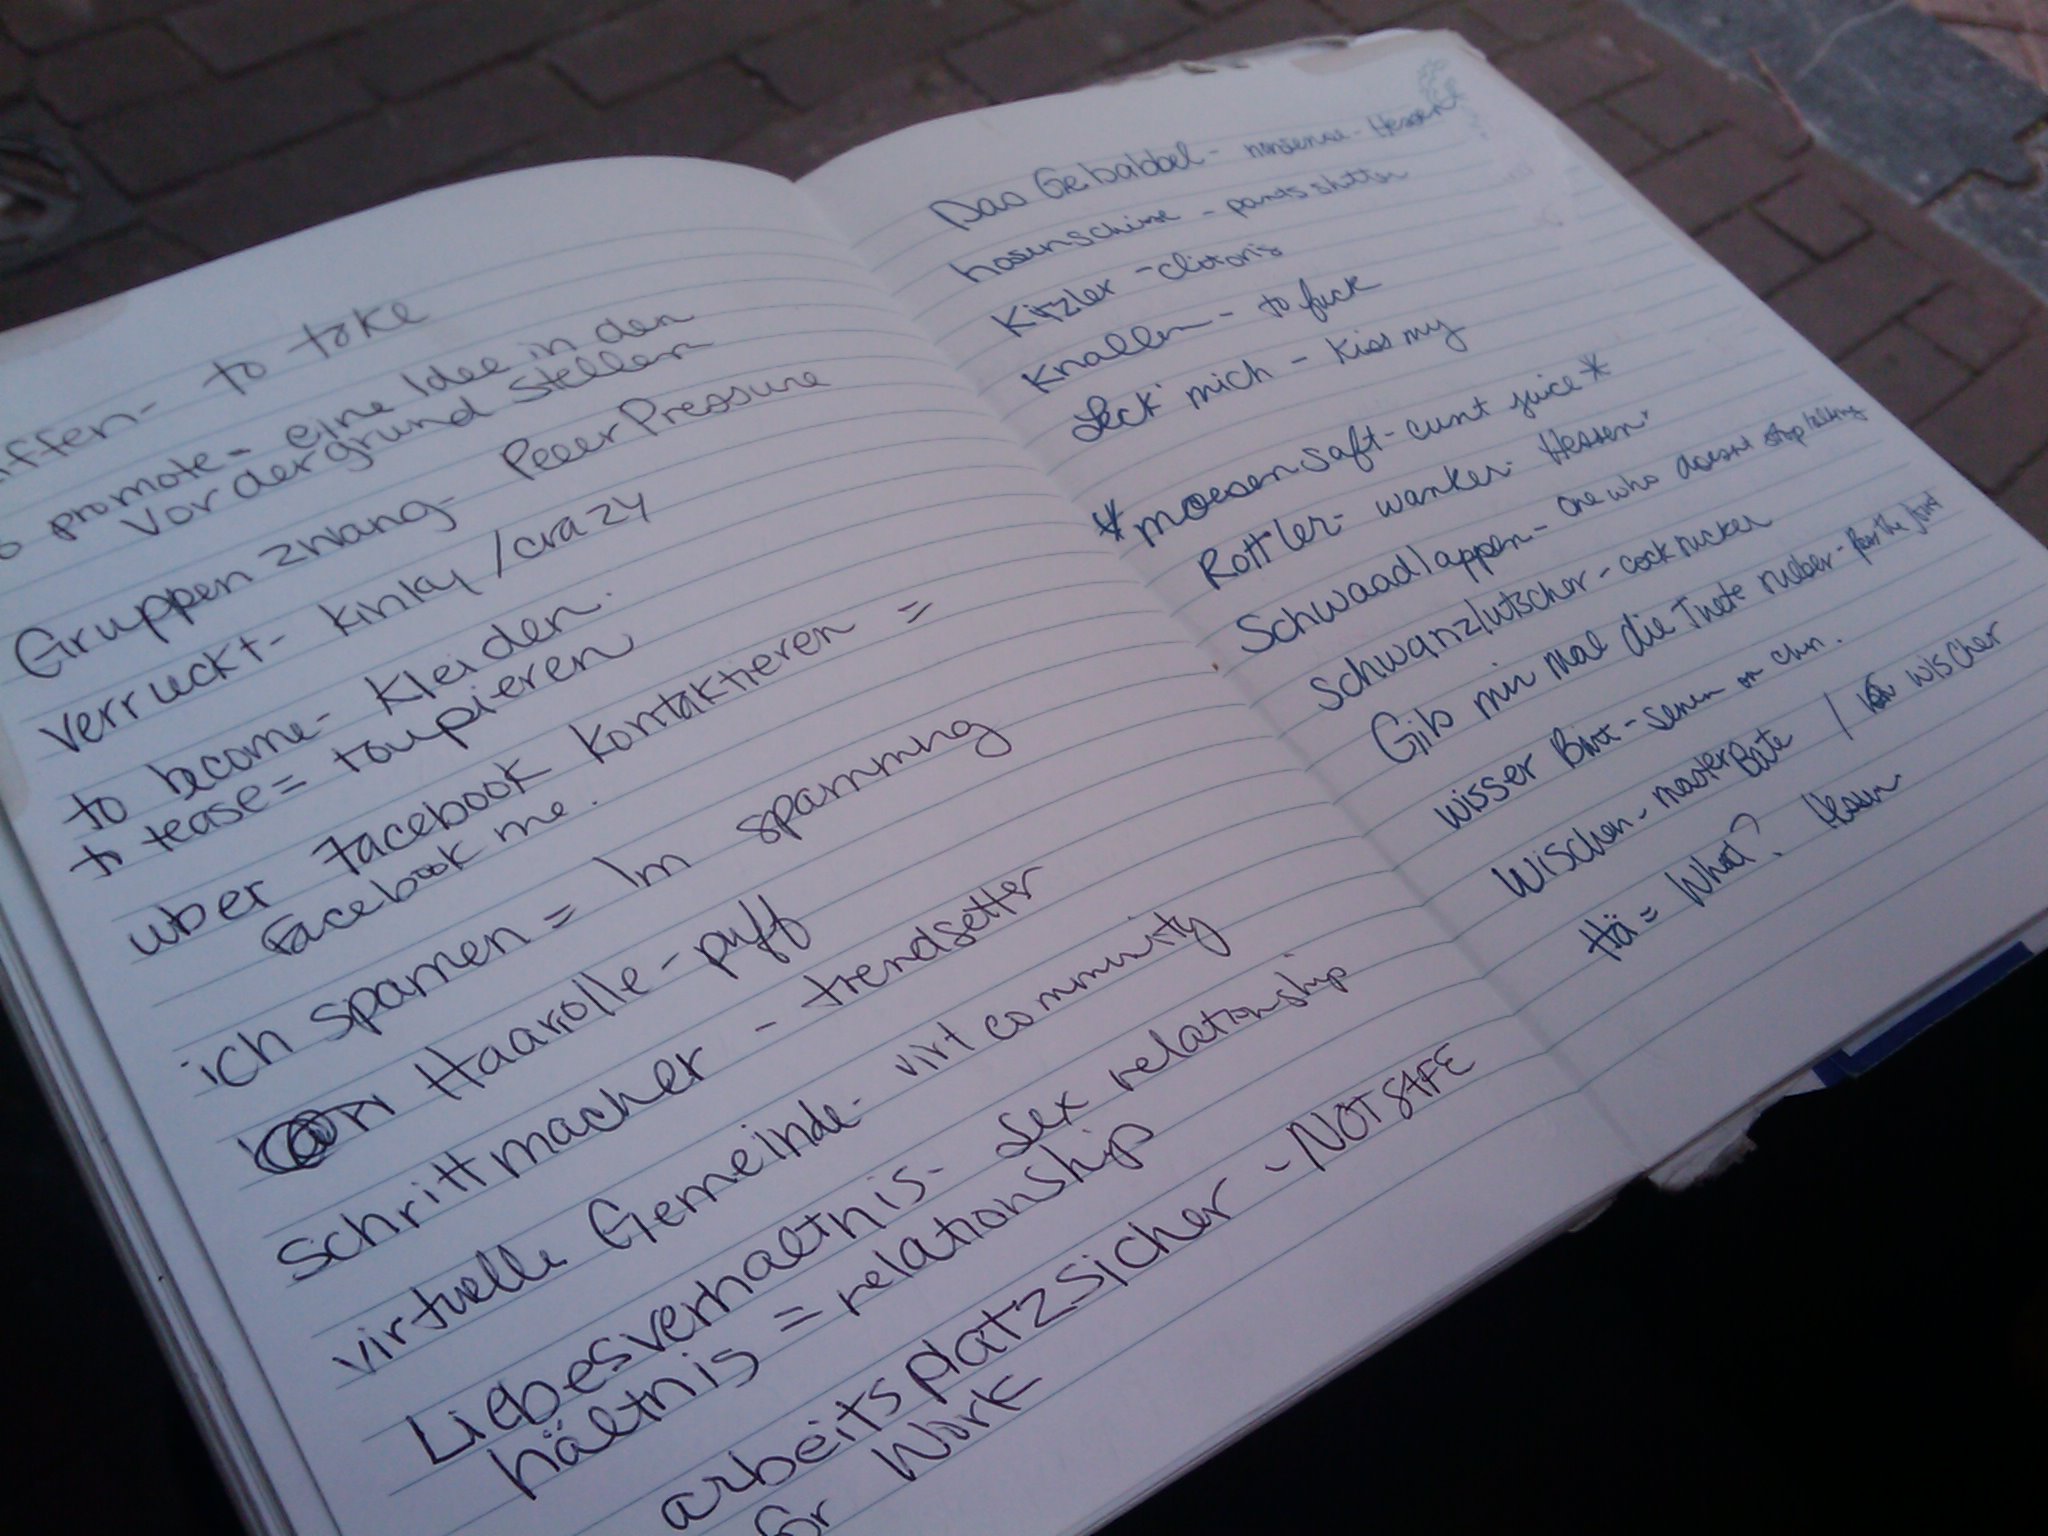 iffen- to toke
promote = eine Idee in den
vordergrund stellen
Gruppenzwang- Peer Pressure
verruckt- kinky / crazy
to become- kleiden.
to tease = toupieren
uber facebook kontaktieren =
facebook me.
ich spamen = Im spamming
Haarrolle - puff
Schrittmacher - trendsetter
virtuelle Gemeinde- virt community
Liebesverhaltnis- Sex relationship
hältnis = relationship
arbeitsplatzsicher - NOT SAFE
for Work
Das Gebabbel - nonsense - Hessen
hosenschisse - pants shitter
Kitzler - clitoris
Knallen - to fuck
Leck' mich - kiss my
* moesensaft- cunt juice *
Rottler- wanker- Hessen
Schwaadlappen- one who doesnt stop talking
schwanzlutscher - cocksucker
Gib mir mal die Tuete rueber - for the joint
wisser Bart - semen on chin.
Wischen- masterBate / wischer
Hä = What? Hessen